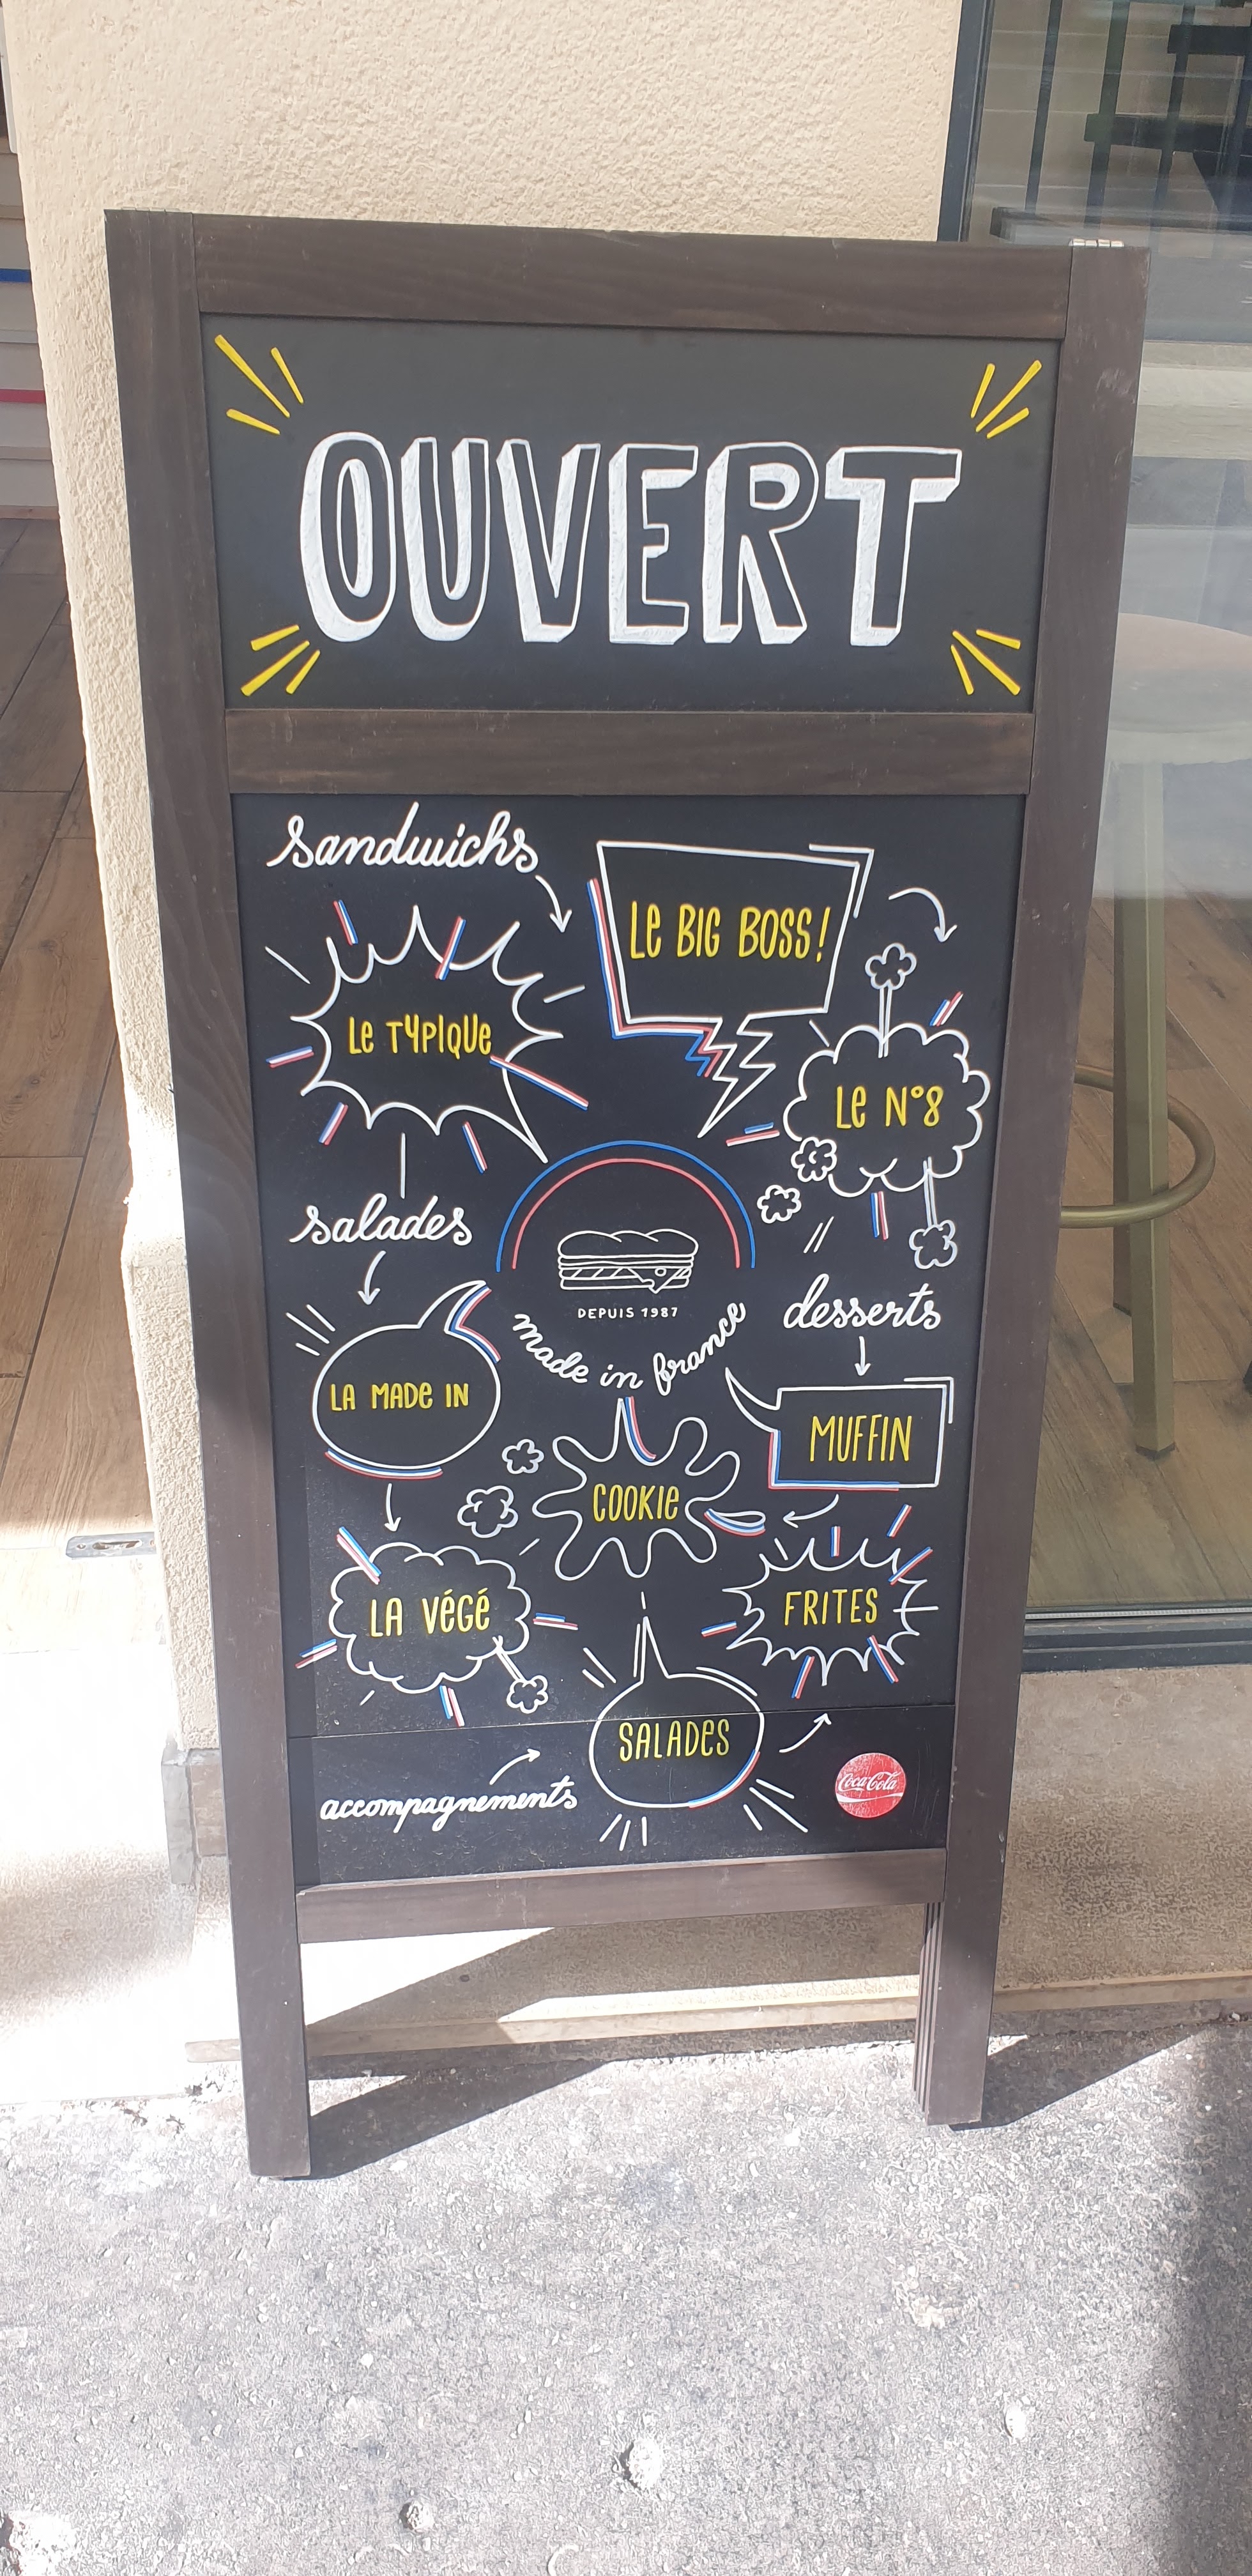 OUVERT
sandwichs
Le BIG BOSS!
Le TYPIQUe
Le N°8
salades
DEPUIS 1987
made in france
desserts
LA MADe IN
MUFFIN
COOKIe
LA VéGé
FRITES
SALADeS
accompagnements
Coca-Cola